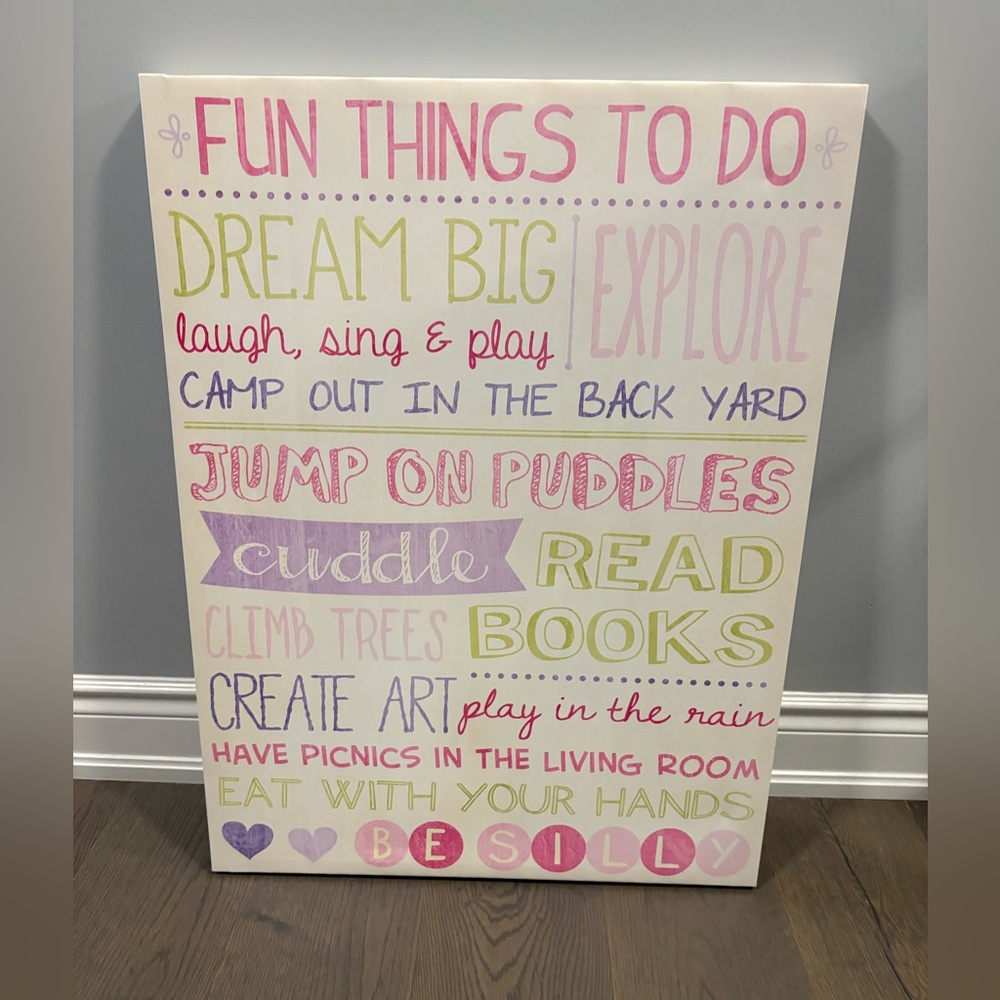 FUN THINGS TO DO
DREAM BIG
EXPLORE
laugh, sing & play
CAMP OUT IN THE BACK YARD
JUMP ON PUDDLES
cuddle
READ
BOOKS
CLIMB TREES
CREATE ART
play in the rain
HAVE PICNICS IN THE LIVING ROOM
EAT WITH YOUR HANDS
BE SILLY